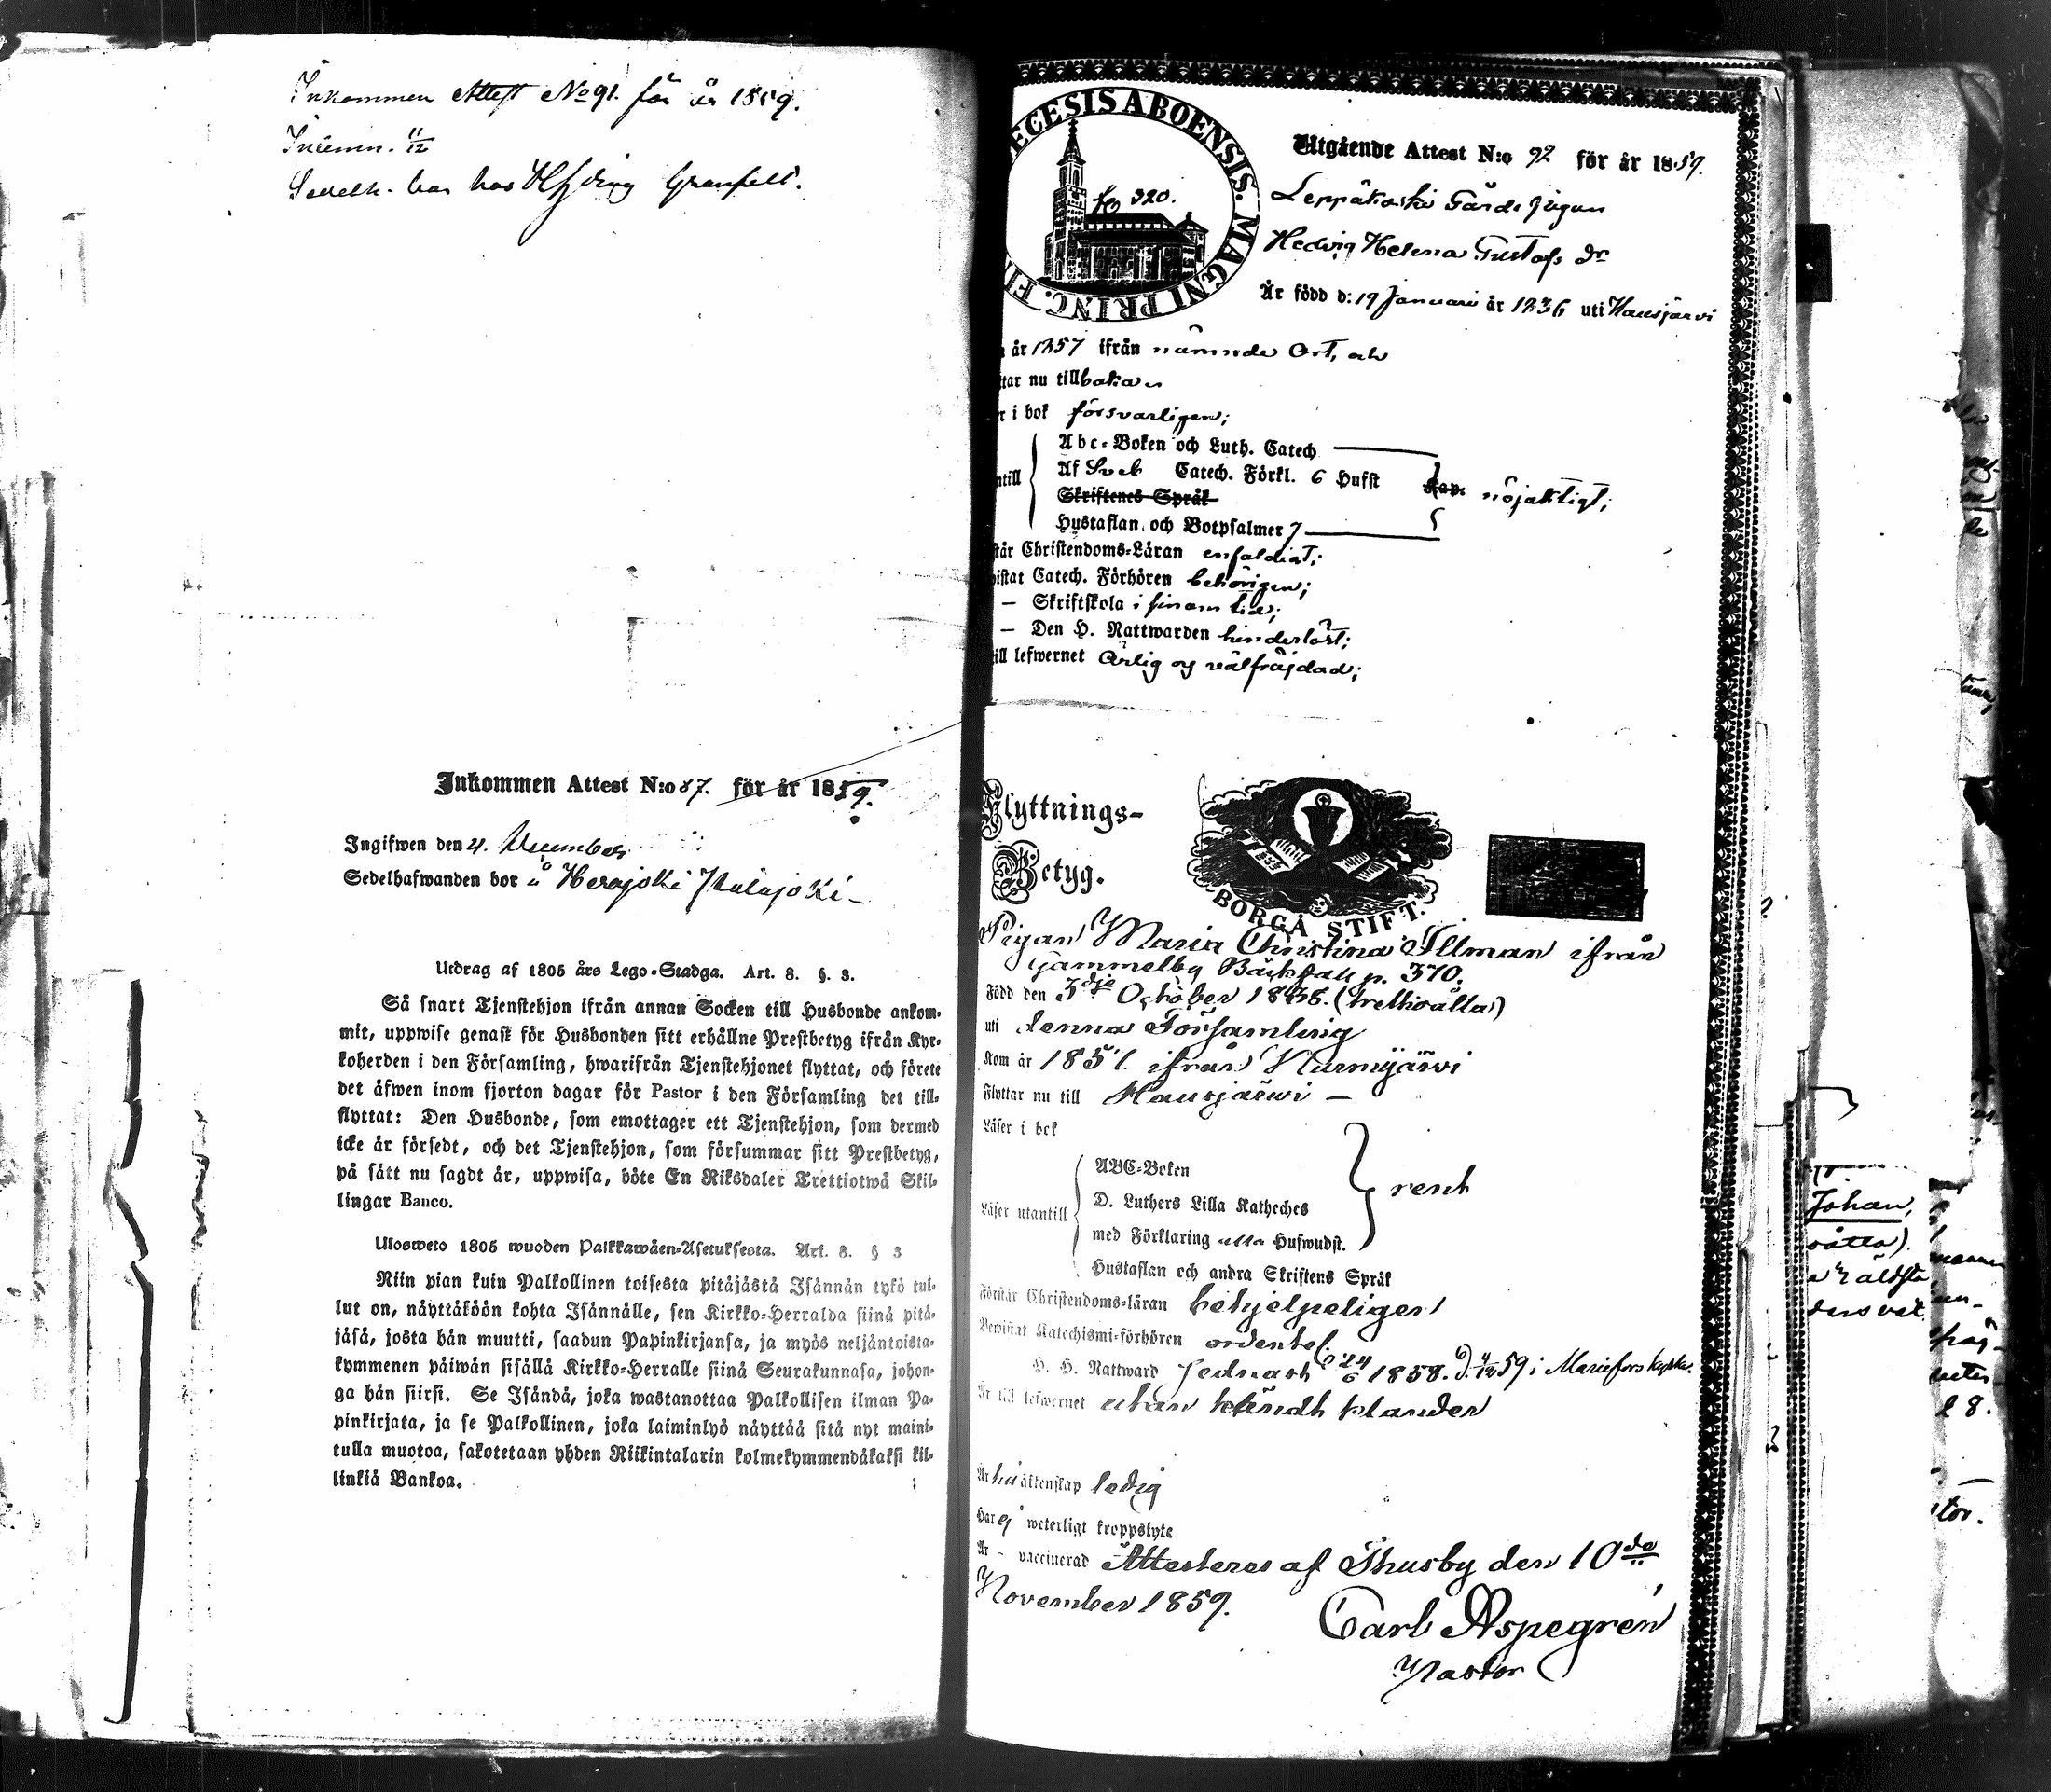 Inkommen Attest No 91. för år 1859.
Inlemn. 11/12
Sedelh. bor hos
Inkommen Attest N:o 87. för år 1859.
Ingifwen den 4. December
Sedelhafwanden bor å Herajoki
Utdrag af 1805 års Lego-Stadga. Art. 8. §. 3.
Så snart Tjenstehjon ifrån annan Socken till Husbonde ankom-
mit, uppwise genast för Husbonden sitt erhållne Prestbetyg ifrån Kyr-
koherden i den Församling, hwarifrån Tjenstehjonet flyttat, och förete
det äfwen inom fjorton dagar för Pastor i den Församling det till-
flyttat: Den Husbonde, som emottager ett Tjenstehjon, som dermed
icke är försedt, och det Tjenstehjon, som försummar sitt Prestbetyg,
på sätt nu sagdt är, uppwisa, böte En Riksdaler Trettiotwå Skil-
lingar Banco.
Ulosweto 1805 wuoden Palkkawäen-Asetuksesta. Art. 8. § 3
Niin pian kuin Palkollinen toisesta pitäjästä Isännän tykö tul-
lut on, näyttäköön kohta Isännälle, sen Kirkko-Herralda siinä pitä-
jäsä, josta hän muutti, saadun Papinkirjansa, ja myös neljäntoista-
kymmenen päiwän sisällä Kirkko-Herralle siinä Seurakunnasa, johon-
ga hän siirsi. Se Isändä, joka wastanottaa Palkollisen ilman Pa-
pinkirjata, ja se Palkollinen, joka laiminlyö näyttää sitä nyt maini-
tulla muotoa, sakotetaan yhden Riikintalarin kolmekymmendäkaksi kil-
linkiä Bankoa.
ECESIS ABOENSIS. MAGNI PRINC. FI
fo 320.
Utgående Attest N:o 92 för år 1859.
Leppäkoski Gårds pigan
Hedvig Helena Gustafs dr
Är född d: 19 Januari år 1836 uti Hausjärvi
år 1857 ifrån nämnde Ort, och
tar nu tillbaka
r i bok försvarligen;
ntill
Abc-Boken och Luth. Catech
Af Sveb Catech. Förkl. 6 Hufst Kap. nöjaktigt;
Skriftenes Språk
Hustaflan och Botpsalmer 7
står Christendoms-Läran enfaldigt;
istat Catech. Förhören behörigen;
— Skriftskola i sinom tid;
— Den H. Nattwarden hinderlöst;
ill lefwernet ärlig og välfräjdad;
Flyttnings-
Betyg.
BORGÅ STIFT.
Pigan Maria Christina Illman ifrån
Gammelby Backstu p. 370.
Född den 3dje October 1838. (trettioåtta)
uti denna Församling
Kom år 1857. ifrån Nurmijärvi
Flyttar nu till Hausjärvi —
Läser i bok
Läser utantill
ABC-Boken
D. Luthers Lilla Katheches
med Förklaring alla Hufwudst.
Hustaflan och andra Skriftens Språk
Förstår Christendoms-läran behjelpeligen
Bewistat Katechismi-förhören ordentel.
H. H. Nattward sednast 24/6 1858. 59 i Mariefors
Är till lefwernet utan kändt klander
Är till äktenskap ledig
Har ej weterligt kroppslyte
Är – vaccinerad Attesteras af Thusby den 10de
November 1859.
Carl Aspegrén
Pastor
Johan,
åtta).